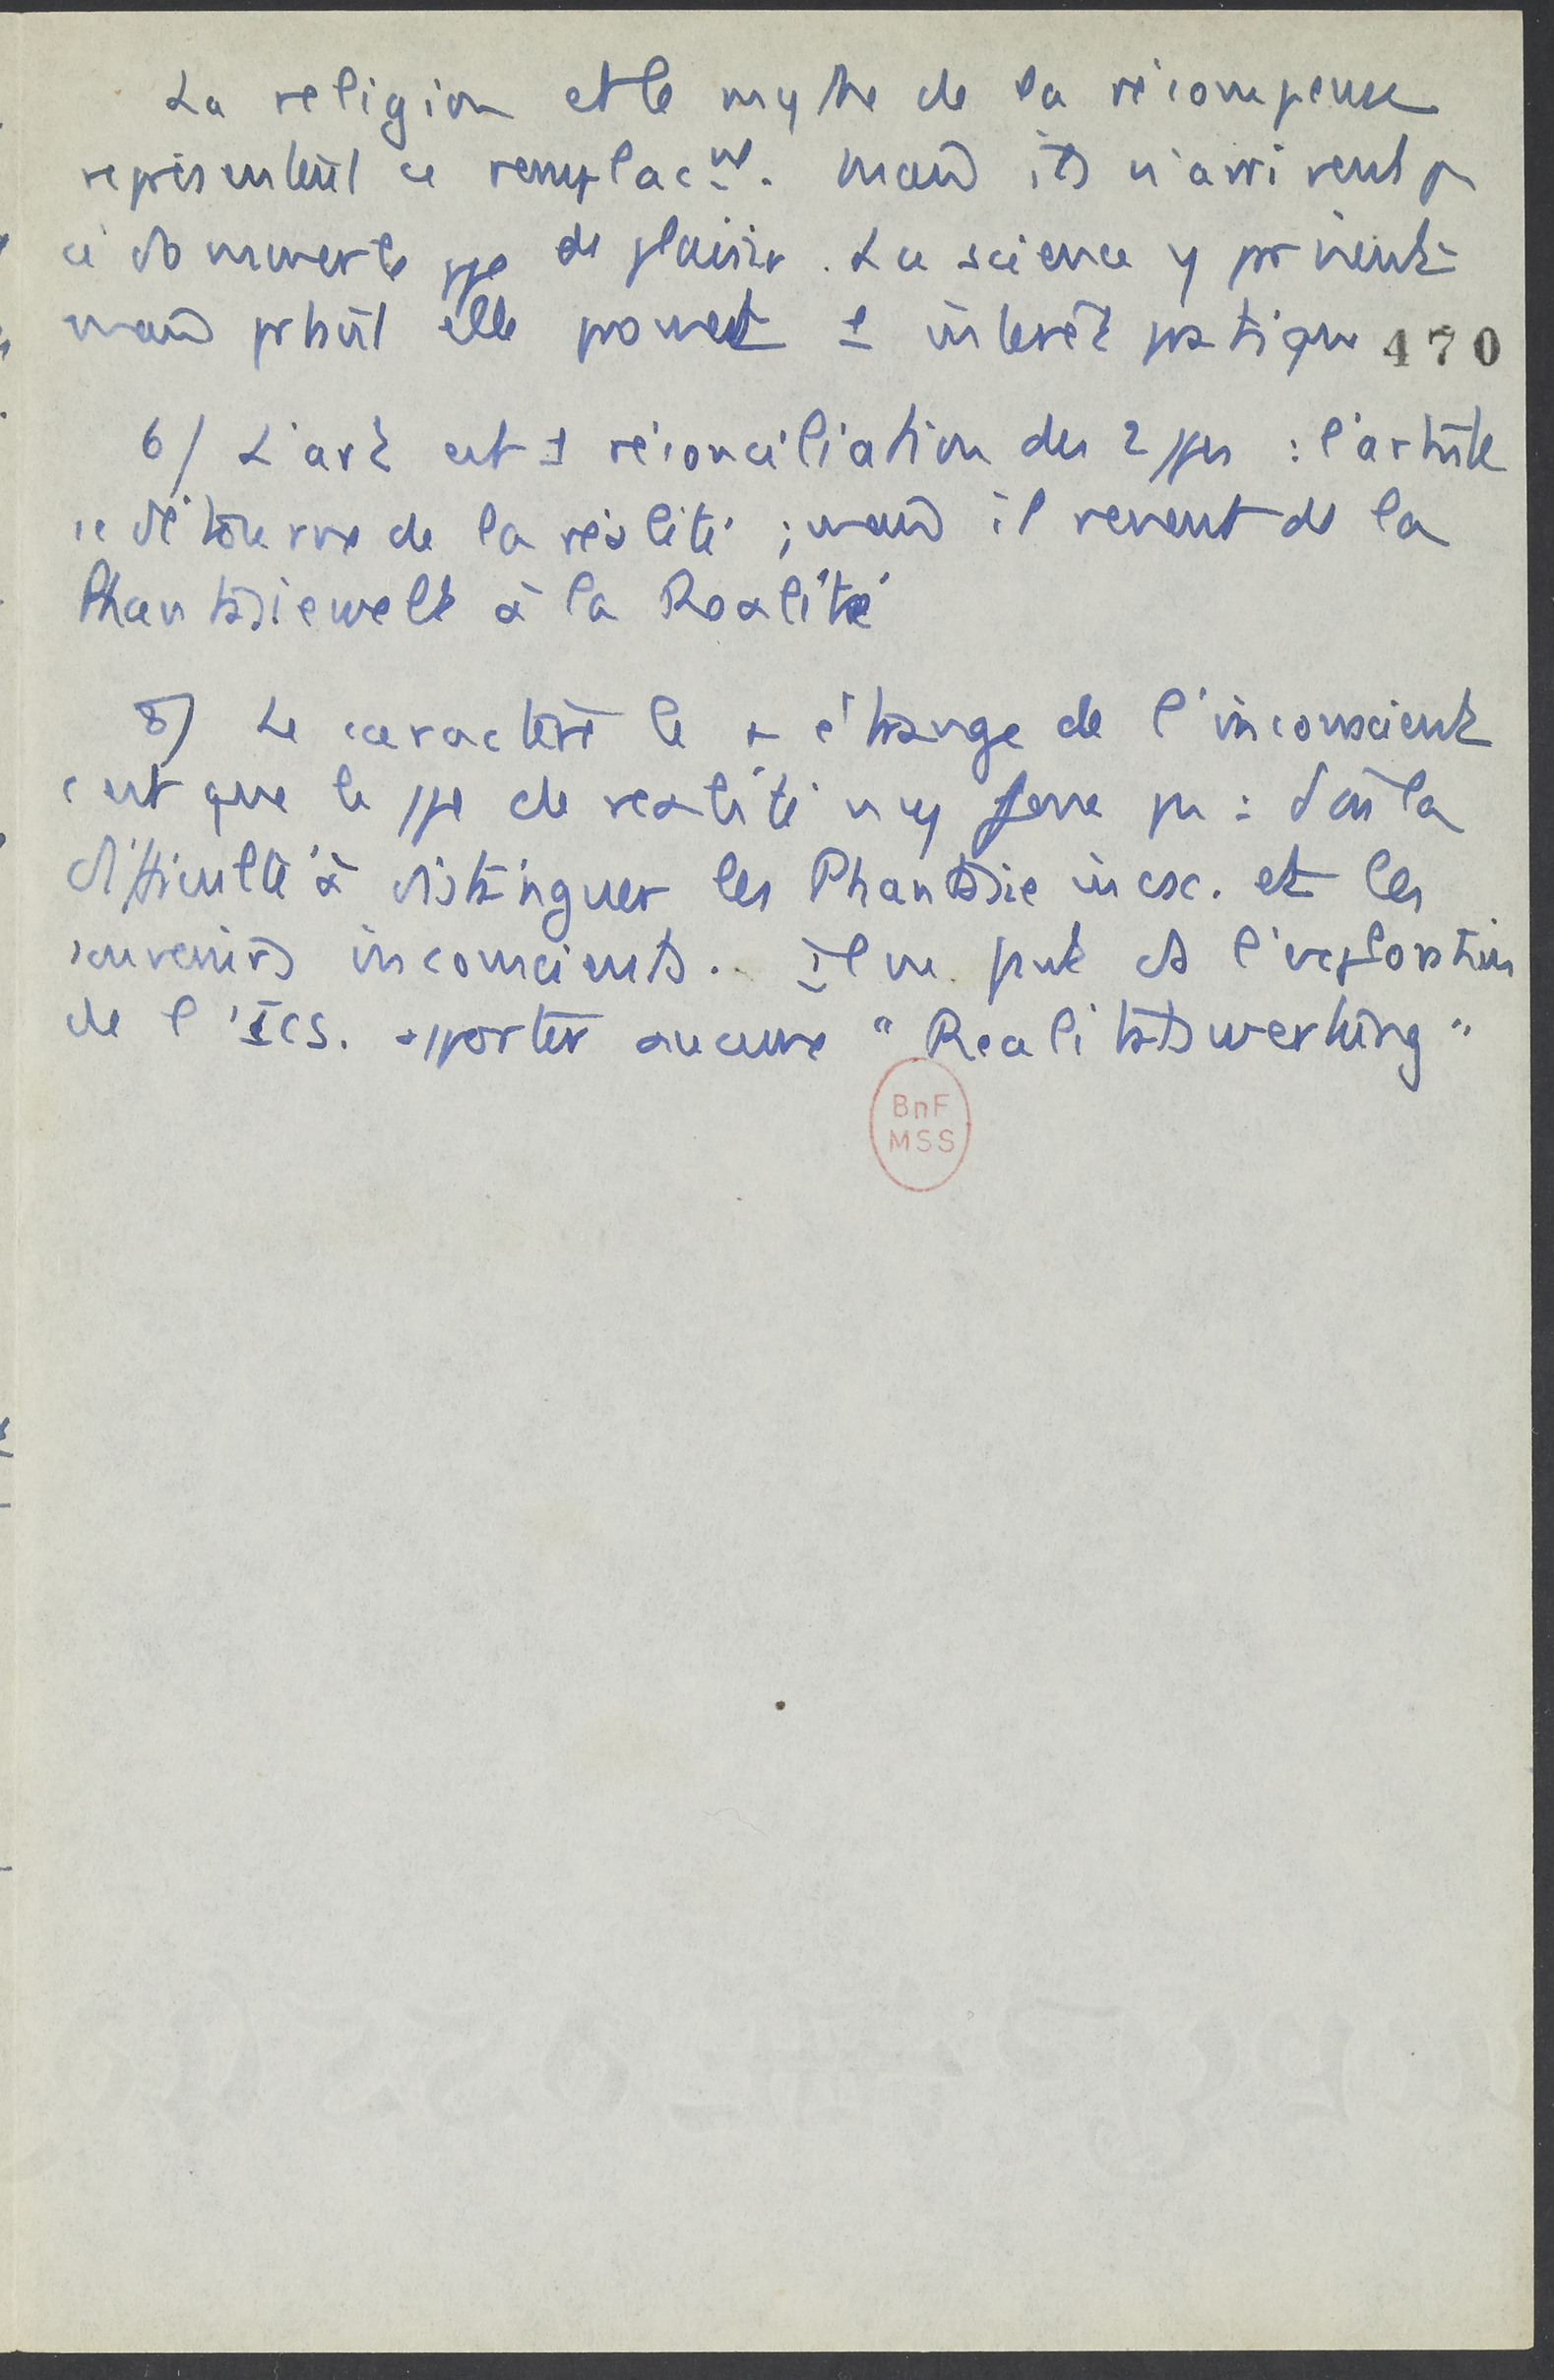 La religion et le mythe de la récompense
représentent ce remplact. mais ils n'arrivent pas
à dominer le ppe de plaisir. La science y parvient
mais partout elle promet 1 intérêt pratique 470
6/ L'art est 1 réconciliation des 2 ppes : l'artiste
se détourne de la réalité ; mais il revient de la
Phantasiewelt à la Realité
8) Le caractère le + étrange de l'inconscient
c'est que le ppe de réalité n'y joue pas : d'où la
difficulté à distinguer les Phantasie incsc. et les
souvenirs inconscients. Il ne peut ds l'exploration
de l'Ics. apporter aucune "Realitätswertung"
BnF
MSS